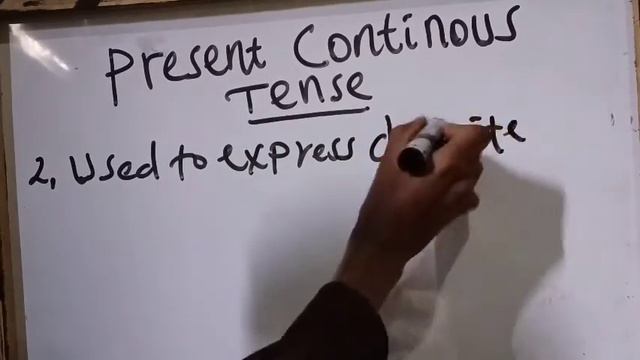 Present Continous
Tense
2, Used to express